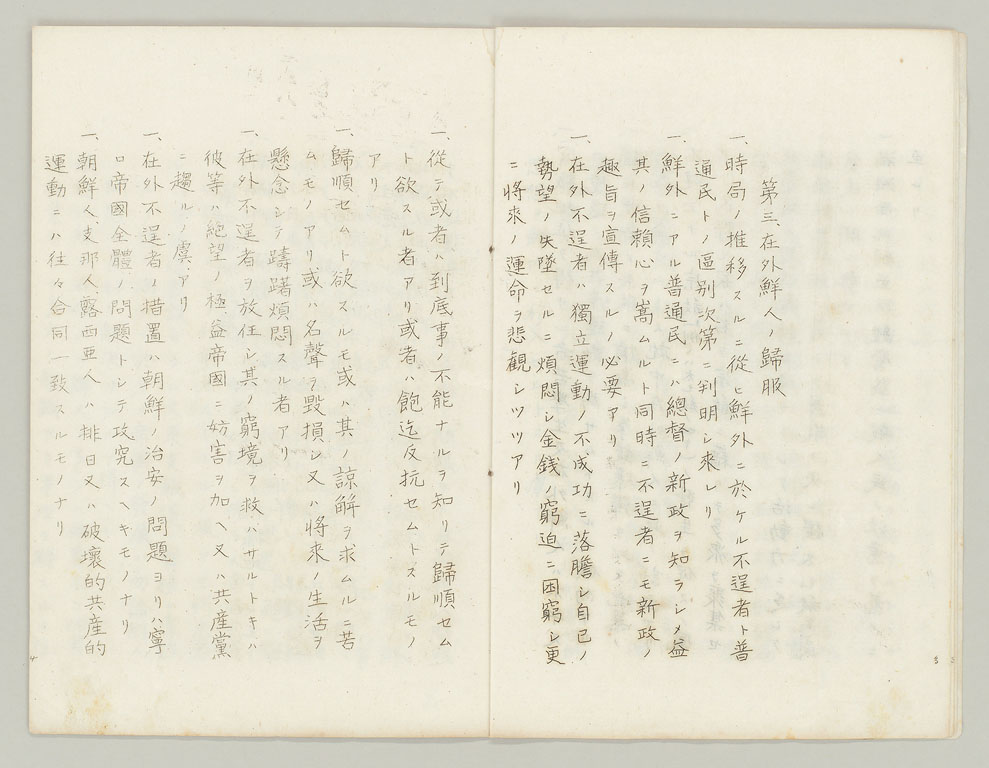 第三、在外鮮人ノ歸服
一、時局ノ推移スルニ從ヒ鮮外ニ於ケル不逞者ト普
通民トノ區別次第ニ判明シ來レリ
一、鮮外ニアル普通民ニハ總督ノ新政ヲ知ラシメ益
其ノ信賴心ヲ嵩ムルト同時ニ不逞者ニモ新政ノ
趣旨ヲ宣傳スルノ必要アリ
一、在外不逞者ハ獨立運動ノ不成功ニ落膽シ自己ノ
勢望ノ失墜セルニ煩悶シ金錢ノ窮迫ニ困窮シ更
ニ將來ノ運命ヲ悲觀シツツアリ
一、從テ或者ハ到底事ノ不能ナルヲ知リテ歸順セム
ト欲スル者アリ或者ハ飽迄反抗セムトスルモノ
アリ
一、歸順セムト欲スルモ或ハ其ノ諒解ヲ求ムルニ苦
ムモノアリ或ハ名聲ヲ毀損シ又ハ將來ノ生活ヲ
懸念シテ躊躇煩悶スル者アリ
一、在外不逞者ヲ放任シ其ノ窮境ヲ救ハサルトキハ
彼等ハ絶望ノ極益帝國ニ妨害ヲ加ヘ又ハ共産黨
ニ趨ルノ虞アリ
一、在外不逞者ノ措置ハ朝鮮ノ治安ノ問題ヨリハ寧
ロ帝國全體ノ問題トシテ攻究スヘキモノナリ
一、朝鮮人支那人露西亞人ハ排日又ハ破壞的共産的
運動ニハ往々合同一致スルモノナリ